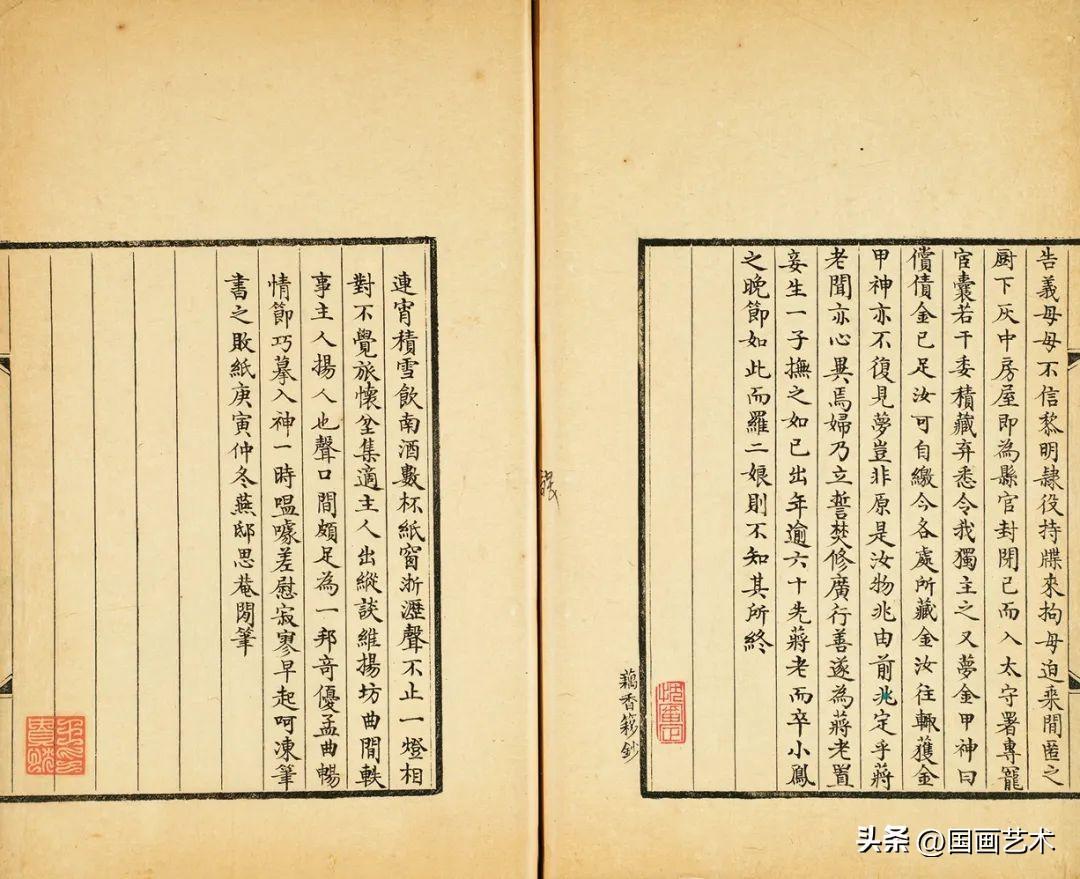 告義母母不信黎明隷役持牒來拘母迫來閒匿之
厨下灰中房屋即為縣官封閉已而入太守署專寵
官囊若干委積藏弃悉令我獨主之又夢金甲神曰
償債金已足汝可自繳今各處所藏金汝往輙獲金
甲神亦不復見夢豈非原是汝物兆由前兆定乎蔣
老聞亦心異焉婦乃立誓焚修廣行善遂為蔣老置
妾生一子撫之如已出年逾六十先蔣老而卒小鳳
之晚節如此而羅二娘則不知其所終
藕香簃鈔
連宵積雪飲南酒數杯紙窗淅瀝聲不止一燈相
對不覺旅懷坌集適主人出縱談維揚坊曲間軼
事主人揚人也聲口間頗足為一邦竒優孟曲暢
情節巧摹入神一時嗢噱差慰寂寥早起呵凍筆
書之敗紙庚寅仲冬燕邸思菴閒筆
头条 @国画艺术